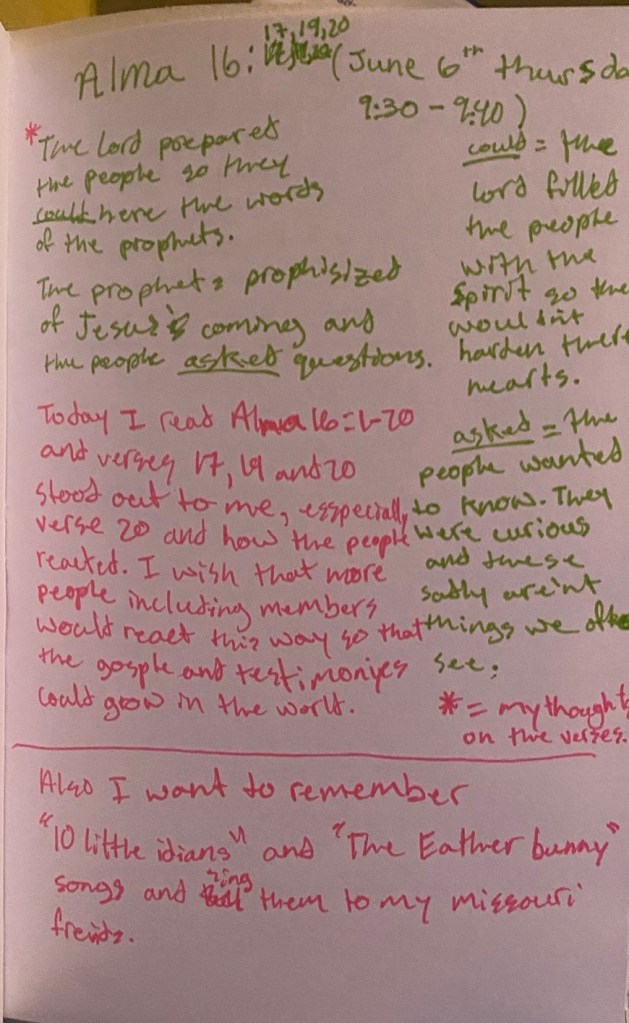 17, 19, 20
Alma 16: (June 6th thursda
9:30 - 9:40)
*The lord prepared
the people so they
could here the words
of the prophets.
The prophets prophisized
of Jesus's coming and
the people asked questions.
could = the
lord filled
the people
with the
Spirit so the
wouldint
harden there
hearts.
asked = the
people wanted
to know. They
were curious
and these
sadly areint
things we ofte
see.
*= my thoughts
on the verses.
Today I read Alma 16:1-20
and verses 17, 19 and 20
stood out to me, esspecially
verse 20 and how the people
reacted. I wish that more
people including members
would react this way so that
the gosple and testimonyes
could grow in the world.
Also I want to remember
"10 little idians" and "The Eather bunny"
songs and sing them to my missouri
freinds.